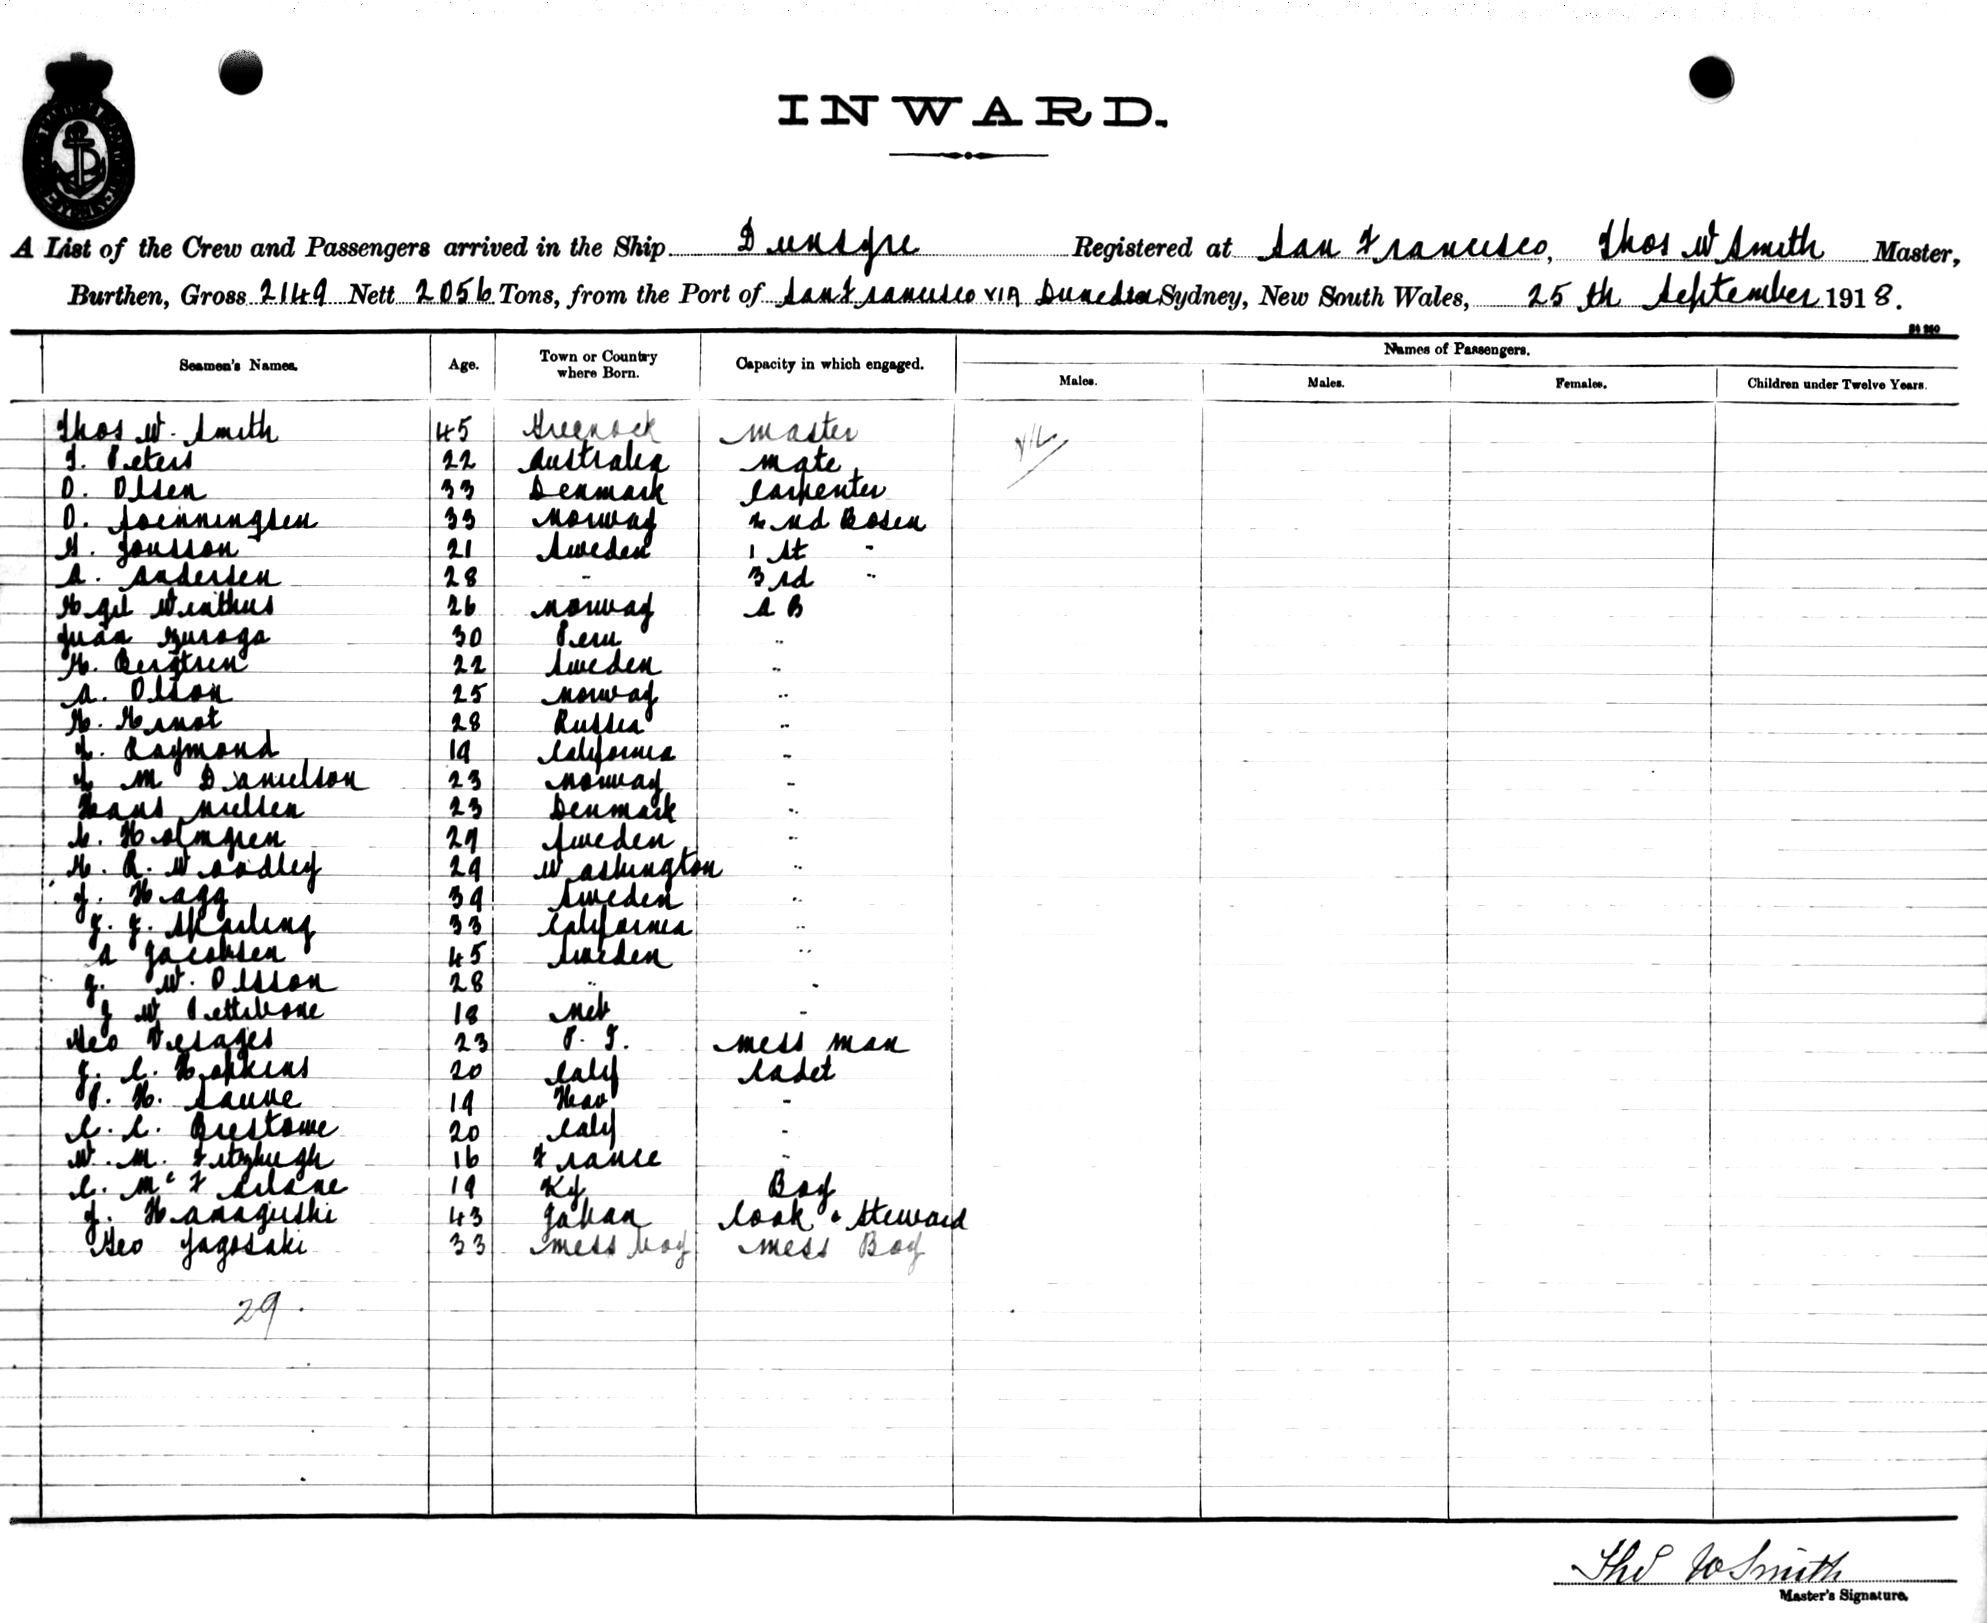 INWARD.
A List of the Crew and Passengers arrived in the Ship Dunsyre Registered at San Francisco, Thos W Smith Master,
Burthen, Gross 2149 Nett 2056 Tons, from the Port of San Francisco VIA Dunedin Sydney, New South Wales, 25th September 1918.
Names of Passengers.
Seamen's Names. Age. Town or Country where Born. Capacity in which engaged. Males. Males. Females. Children under Twelve Years.
Thos W. Smith 45 Greenock Master Nil
Peters 22 Australia Mate
O. Olsen 33 Denmark Carpenter
O. 33 Norway 2nd Bosen
Jonsson 21 Sweden 1 St "
A. Andersen 28 " 3rd "
26 Norway A B
Juan 30 Peru "
22 Sweden "
A. Olson 25 Norway "
28 Russia "
Raymond 19 California "
M Danielson 23 Norway "
Hans Nielsen 23 Denmark "
C. Holmgren 29 Sweden "
R. Woodley 29 Washington "
J. Hagg 39 Sweden "
J. J. 33 California "
A Jacobsen 45 Sweden "
J. W. Olsson 28 " "
J W Pettibone 18 Neb "
Geo 23 P. I. Mess man
J. C. Hopkins 20 Calif Cadet
P. H. Sauve 19 "
C. C. Bristowe 20 Calif "
W. M. Fitzhugh 16 France "
C. McFarlane 19 Ky Boy
43 Japan Cook & Steward
Geo 33 mess boy Mess Boy
29.
Thos W Smith
Master's Signature.